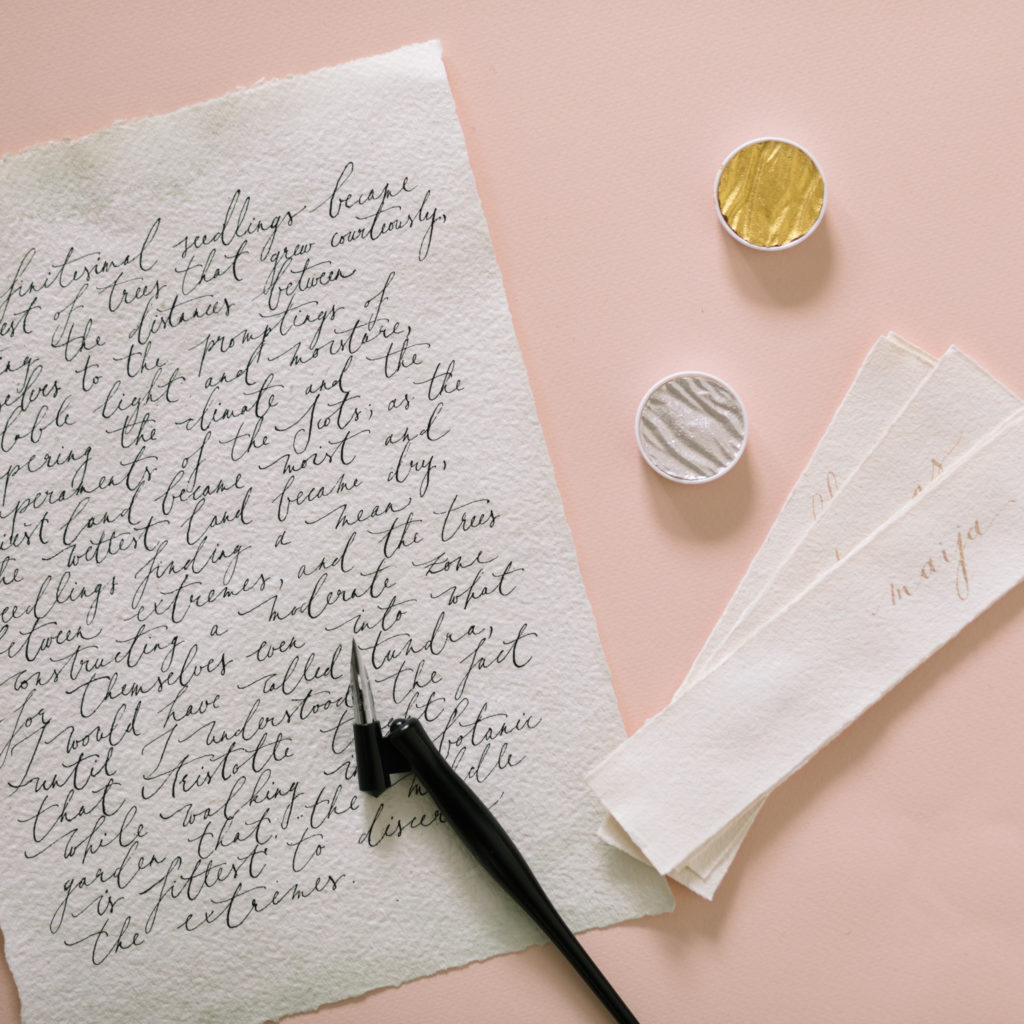 finitesimal seedlings became
est of trees that grew courteously,
ing the distances between
selves to the promptings of
table light and moisture,
pering the climate and the
peraments of the Scots; as the
iest land became moist and
he wettest land became dry,
seedlings finding a mean
between extremes, and the trees
constructing a moderate zone
for themselves even into what
I would have called tundra,
until I understood the fact
that Aristotle taught
while walking in a botanic
garden that the middle
is fittest to discern
the extremes.
as
maija